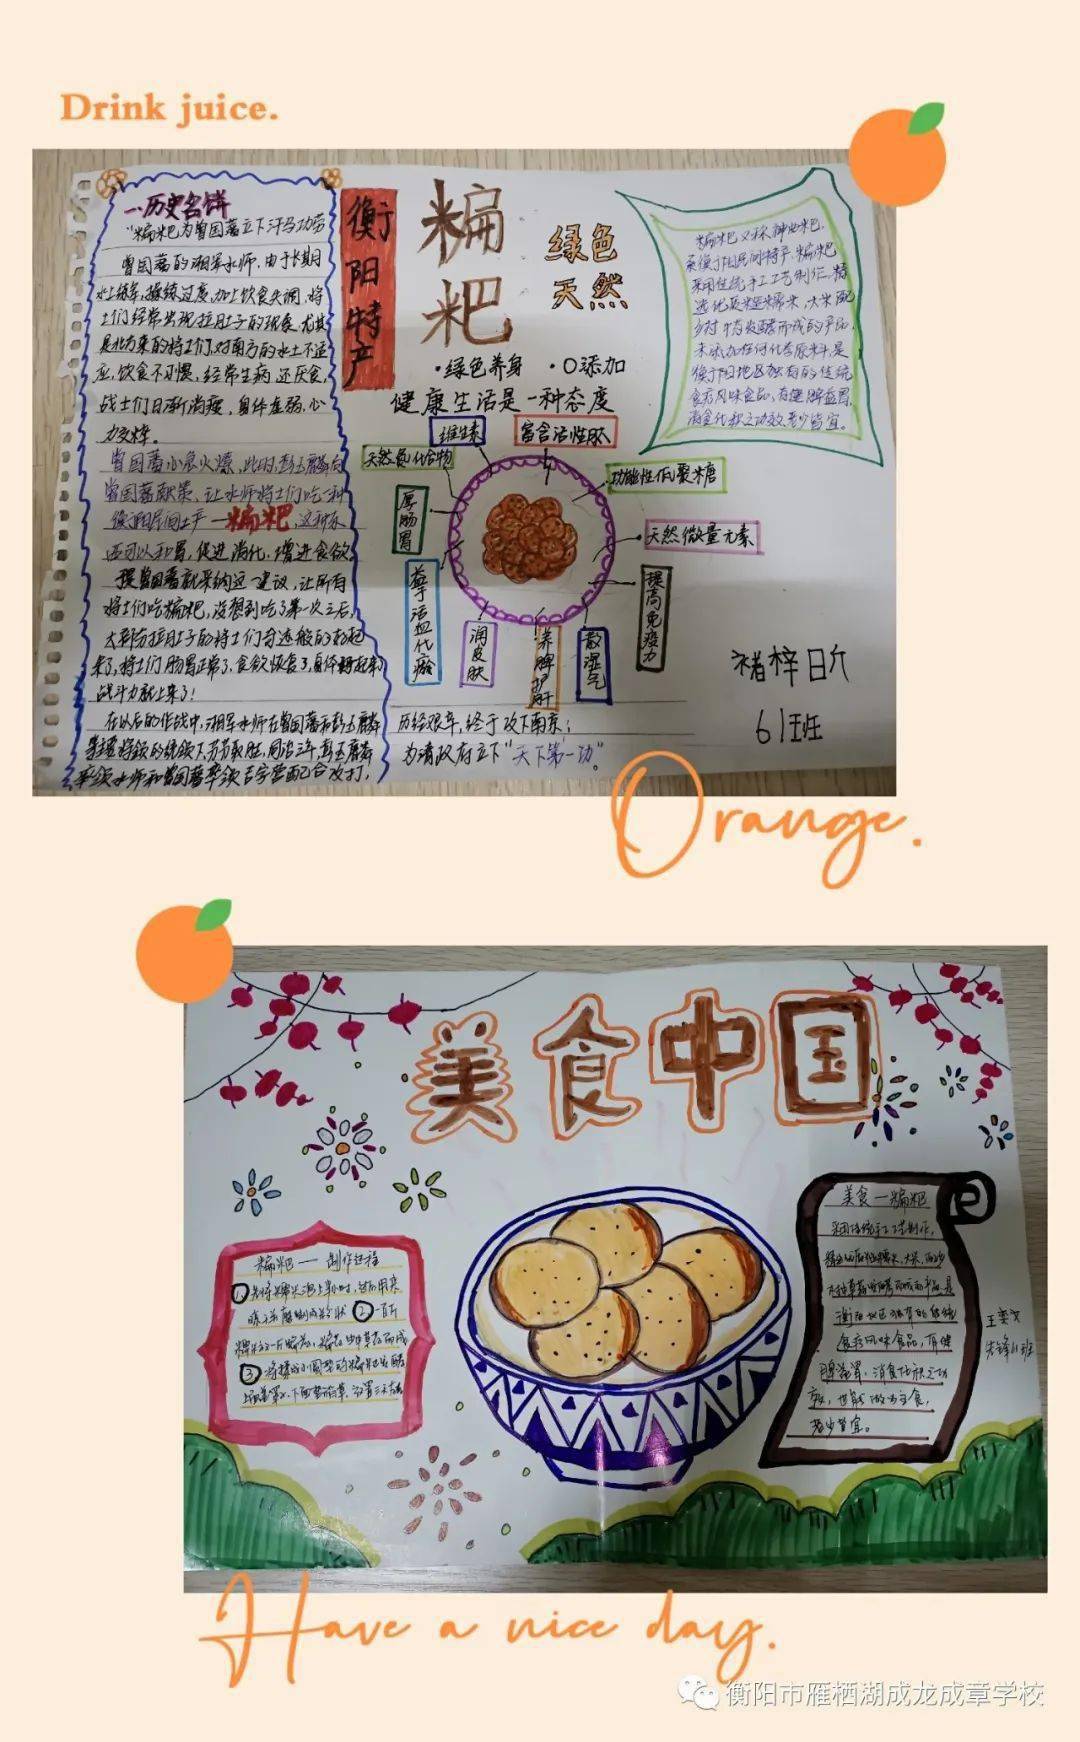 Drink juice.
一.历史名饼
"糄粑为曾国藩立下汗马功劳
曾国藩的湘军水师,由于长期
水上练军,操练过度,加上饮食失调,将
士们经常出现拉肚子的现象,尤其
是北方来的将士们,对南方的水土不适
应,饮食不习惯,经常生病,还厌食,
战士们日渐消瘦,身体虚弱,心
力交瘁。
曾国藩心急火燎,此时,彭玉麟向
曾国藩献策,让水师将士们吃一种
衡阳民间土产—糄粑,这种东
西可以和胃,促进消化,增进食欲。
曾国藩就采纳这一建议,让所有
将士们吃糄粑,没想到吃了第一次之后,
大部分拉肚子的将士们奇迹般的好起
来了,将士们肠胃正常了,食欲恢复了,身体
战斗力就上来了!
在以后的作战中,湘军水师在曾国藩和彭玉麟
等将领的统领下,节节取胜,同治三年,彭玉麟
率领水师和曾国藩率领吉字营配合攻打,
历经艰辛,终于攻下南京;
为清政府立下"天下第一功"。
衡阳特产
糄粑
绿色
天然
·绿色养身 ·0添加
健康生活是一种态度
维生素
富含活性肽
天然氮化合物
功能性低聚糖
厚肠胃
天然微量元素
益子活血化瘀
润皮肤
养脾护肝
散湿气
提高免疫力
糄粑又称神曲粑,
系衡阳民间特产,糄粑
采用传统手工工艺制作,精
选优质糯米,大米配
乡村 发酵而成的产品,
未添加任何化合原料,是
衡阳地区独有的传统
食疗风味食品,有健脾益胃,
消食化积之功效,老少皆宜。
褚梓日斤
61班
Orange.
美食中国
糄粑——制作过程
①先将糯米泡上半小时,
②
③
美食—糄粑
采用传统手工工艺制作,
衡阳地区独有的传统
食疗风味食品,有健
脾益胃,消食化积之功
效,也能做为主食,
老少皆宜。
先锋11班
Have a nice day.
衡阳市雁栖湖成龙成章学校